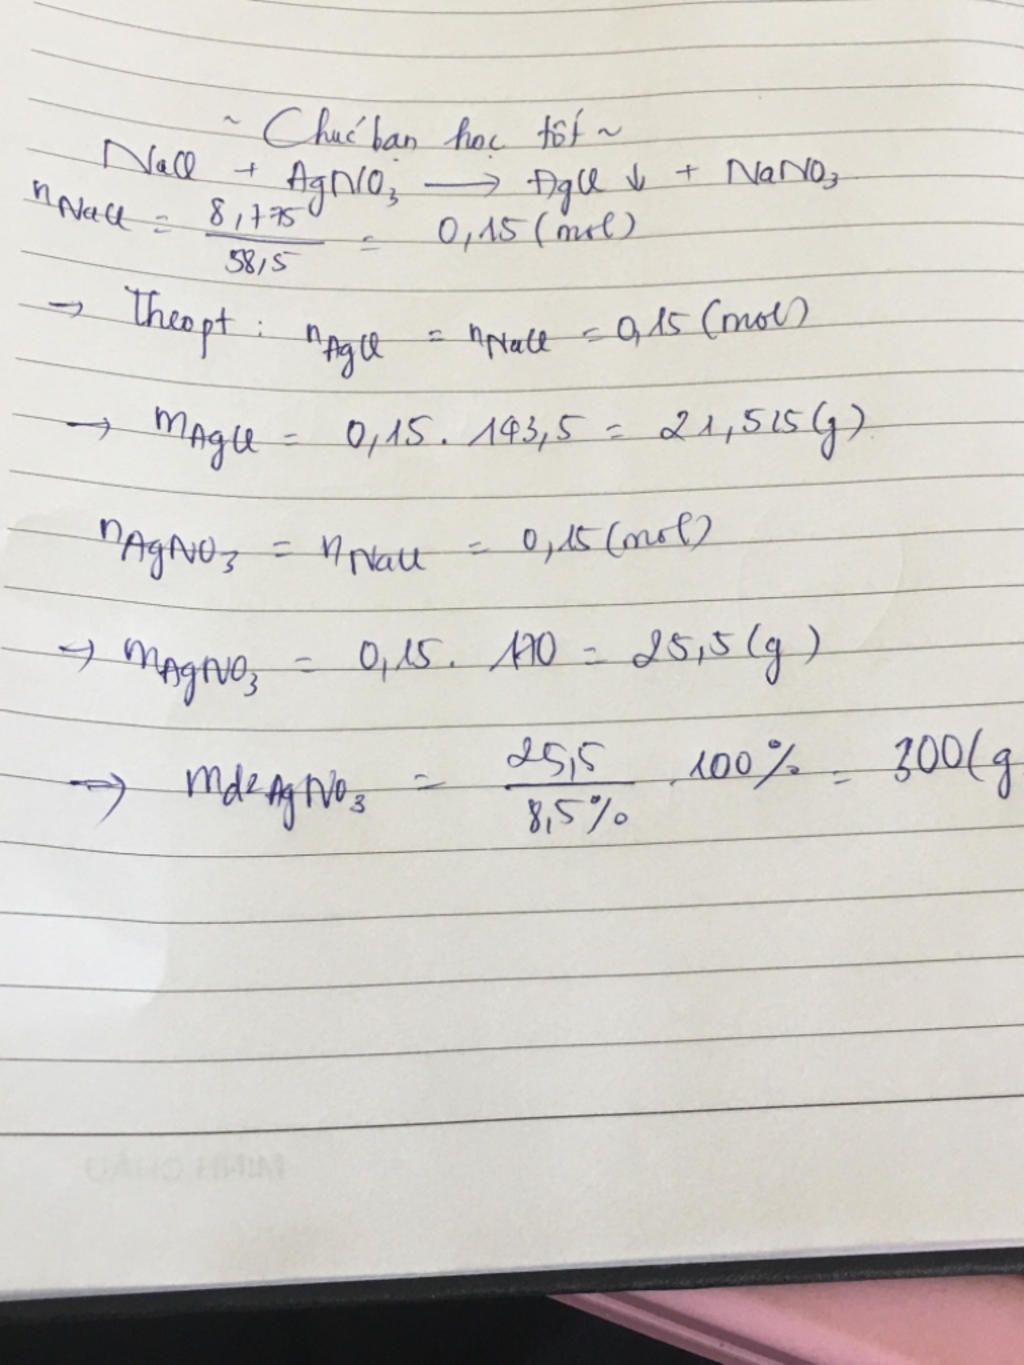 ~ Chúc bạn học tốt ~
NaCl + AgNO3 → AgCl ↓ + NaNO3
nNaCl = 8,775 / 58,5 = 0,15 (mol)
→ Theo pt : nAgCl = nNaCl = 0,15 (mol)
→ mAgCl = 0,15 . 143,5 = 21,525 (g)
nAgNO3 = nNaCl = 0,15 (mol)
→ mAgNO3 = 0,15 . 170 = 25,5 (g)
→ mdd AgNO3 = 25,5 / 8,5% . 100% = 300 (g
MINH CHÂU